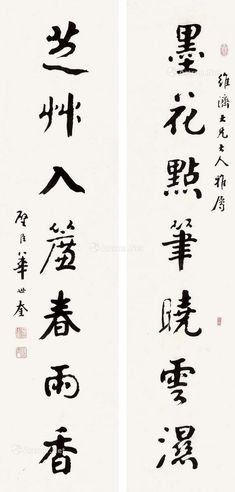 維濟大兄大人雅屬
墨花點筆曉雲濕
芝艸入簾春雨香
璧臣華世奎